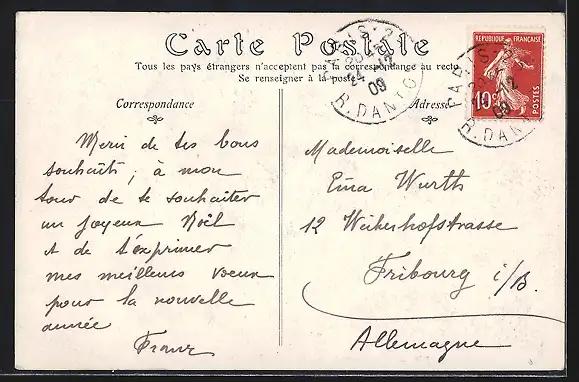 Carte Postale
Tous les pays étrangers n'acceptent pas la correspondance au recto
Se renseigner à la poste
Correspondance
Adresse
REPUBLIQUE FRANÇAISE
10c
POSTES
PARIS
24 12
09
R. DANTO
PARIS
12
09
R. DANTO
Merci de tes bons
souhaits, à mon
tour de te souhaiter
un joyeux Noël
et de t'exprimer
mes meilleurs voeux
pour la nouvelle
année
Franz
Mademoiselle
Wurth
12 Weiherhofstrasse
Fribourg i/B.
Allemagne